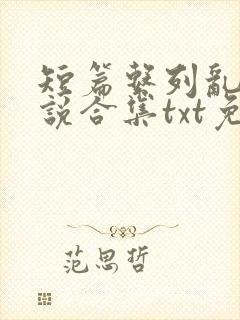 短篇系列乱
说合集txt免
范思哲